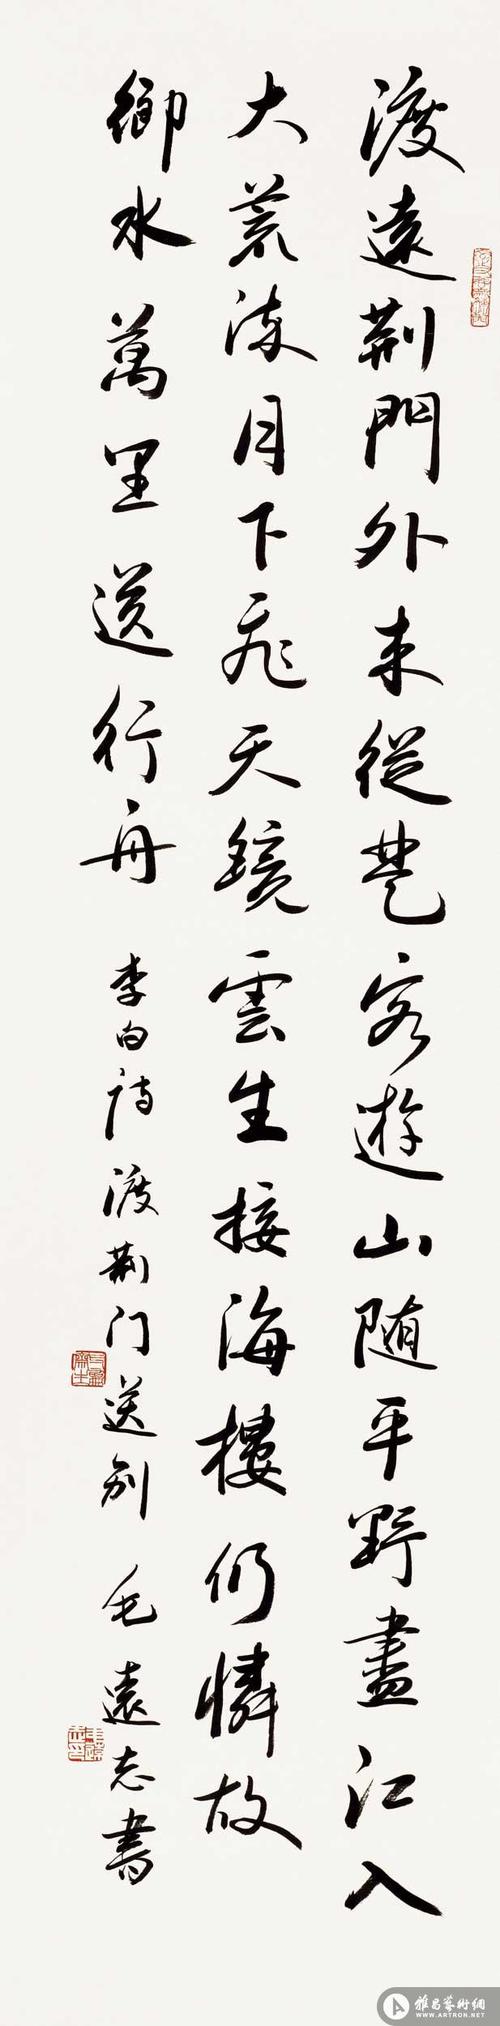 渡遠荊門外来從楚客遊山随平野盡江入
大荒流月下飛天鏡雲生接海樓仍憐故
鄉水萬里送行舟 李白詩渡荊门送别 毛遠志書
雅昌藝術網
WWW.ARTRON.NET